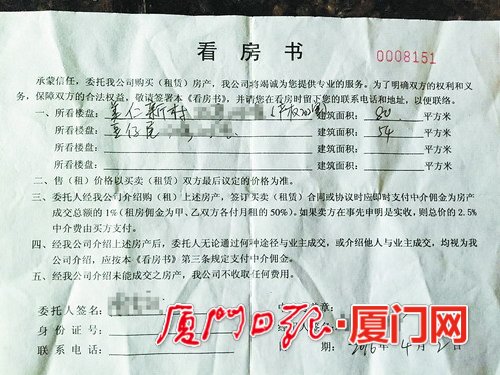 看房书
0008151
承蒙信任，委托我公司购买（租赁）房产，我公司将竭诚为您提供专业的服务。为了明确双方的权利和义
务，保障双方的合法权益，敬请签署本《看房书》，并请您在看房时留下您的联系电话和地址，以便联络。
一、所看楼盘： 建筑面积：80 平方米
所看楼盘： 建筑面积：54 平方米
所看楼盘： 建筑面积： 平方米
二、售（租）价格以买卖（租赁）双方最后议定的价格为准。
三、委托人经我公司介绍购（租）上述房产，签订买卖（租赁）合同或协议时应即时支付中介佣金为房产
成交总额的1%（租房佣金为甲、乙双方各付月租的50%）。如果卖方在事先申明是实收，则总价的2.5%
中介费由买方支付。
四、经我公司介绍上述房产后，委托人无论通过何种途径与业主成交，或介绍他人与业主成交，均视为我
公司介绍，应按本《看房书》第三条规定支付中介佣金。
五、经我公司介绍未能成交之房产，我公司不收取任何费用。
委托人签名：
身份证号：
联系电话：
章：
签名：
期：2016年4月2日
厦门日报·厦门网